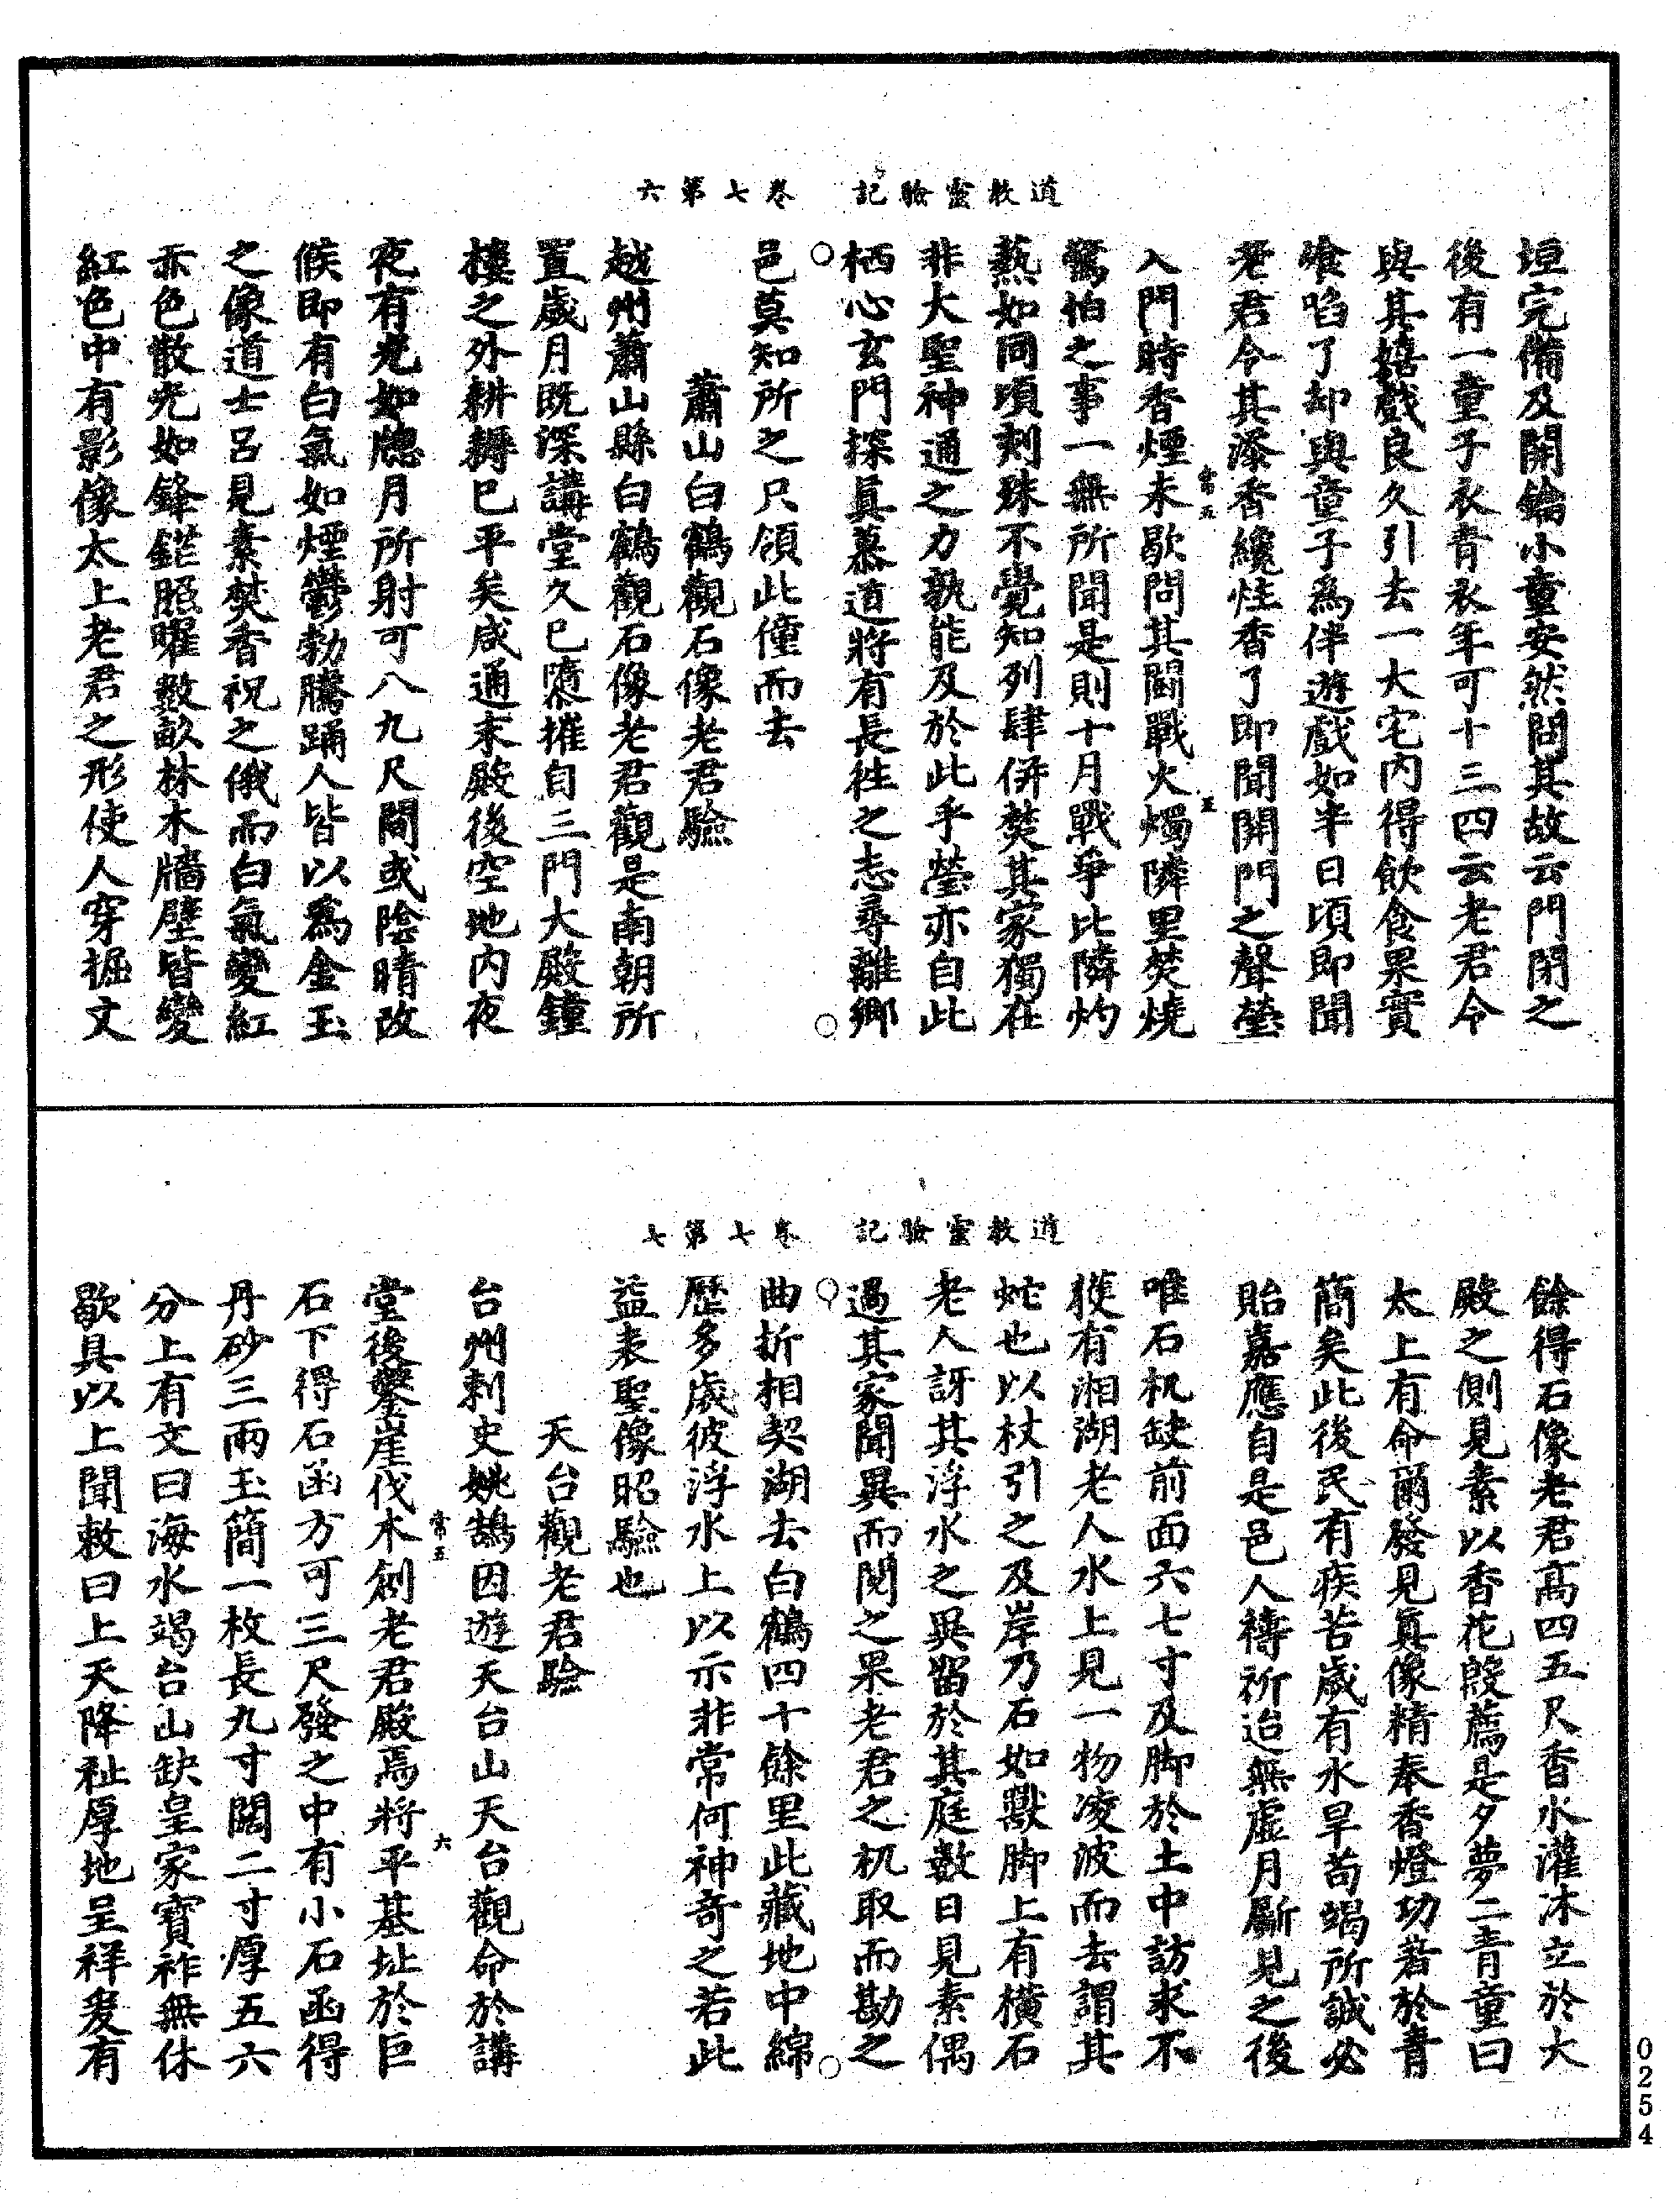 道教靈驗記　卷七第六
垣完備及開鑰小童安然問其故云門閉之
後有一童子衣青衣年可十三四云老君令
與其嬉戲良久引去一大宅内得飲食果實
喰啗了却與童子爲伴遊戲如半日頃即聞
老君令其添香纔炷香了即聞開門之聲瑩
入門時香煙未歇問其鬭戰火燭隣里焚燒
常五　五
驚怕之事一無所聞是則十月戰爭比隣灼
爇如同頃刻殊不覺知列肆併焚其家獨在
非大聖神通之力孰能及於此乎瑩亦自此
栖心玄門探眞慕道將有長往之志尋離鄉
邑莫知所之只領此僮而去
蕭山白鶴觀石像老君驗
越州蕭山縣白鶴觀石像老君觀是南朝所
置歲月既深講堂久已隳摧自三門大殿鐘
樓之外耕耨已平矣咸通末殿後空地内夜
夜有光如牕月所射可八九尺間或陰晴改
候即有白氣如煙鬱勃騰踊人皆以爲金玉
之像道士呂見素焚香祝之俄而白氣變紅
赤色散光如鋒鋩照曜數畝林木牆壁皆變
紅色中有影像太上老君之形使人穿掘丈
道教靈驗記　卷七第七
餘得石像老君高四五尺香水灌沐立於大
殿之側見素以香花殷薦是夕夢二青童曰
太上有命爾發見眞像精奉香燈功著於青
簡矣此後民有疾苦歲有水旱苟竭所誠必
貽嘉應自是邑人禱祈迨無虛月斸見之後
唯石机缺前面六七寸及脚於土中訪求不
獲有湘湖老人水上見一物凌波而去謂其
蛇也以杖引之及岸乃石如獸脚上有橫石
老人訝其浮水之異留於其庭數日見素偶
過其家聞異而閱之果老君之机取而勘之
曲折相契湖去白鶴四十餘里此藏地中綿
歷多處彼浮水上以示非常何神奇之若此
益表聖像昭驗也
天台觀老君驗
台州刺史姚鵠因遊天台山天台觀命於講
堂後鑿崖伐木創老君殿焉將平基址於巨
常五　六
石下得石函方可三尺發之中有小石函得
丹砂三兩玉簡一枚長九寸闊二寸厚五六
分上有文曰海水竭台山缺皇家寶祚無休
歇具以上聞敕曰上天降祉厚地呈祥爰有
0254